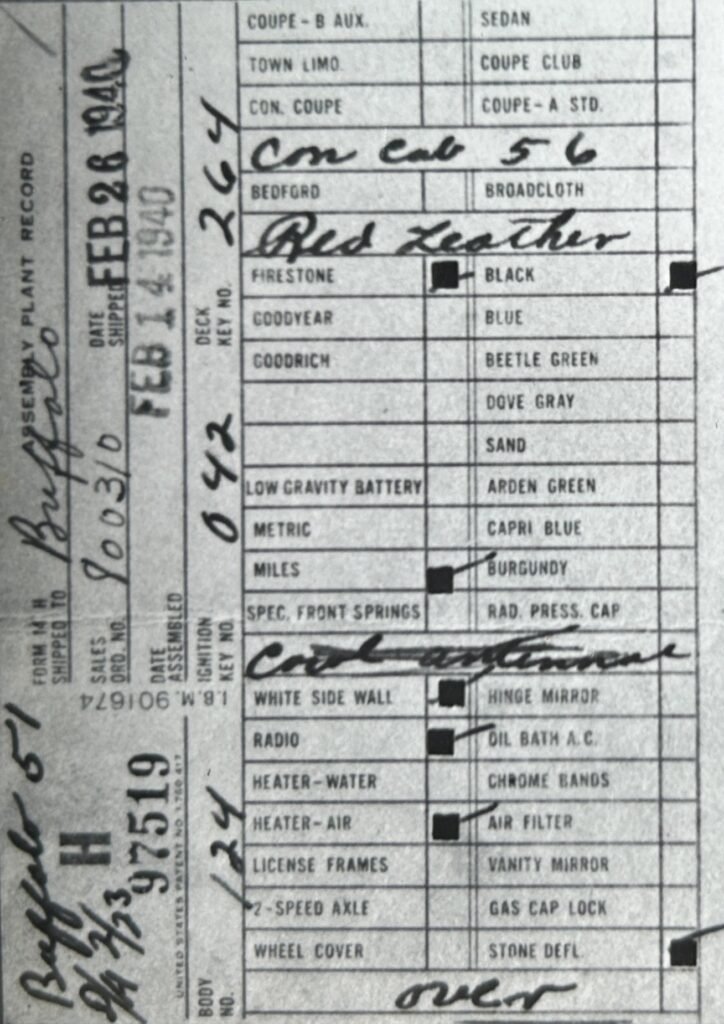 COUPE - B AUX. SEDAN
TOWN LIMO. COUPE CLUB
CON. COUPE COUPE - A STD.
Con cab 56
BEDFORD BROADCLOTH
Red Leather
FIRESTONE BLACK
GOODYEAR BLUE
GOODRICH BEETLE GREEN
DOVE GRAY
SAND
LOW GRAVITY BATTERY ARDEN GREEN
METRIC CAPRI BLUE
MILES BURGUNDY
SPEC. FRONT SPRINGS RAD. PRESS. CAP
Cowl antennae
WHITE SIDE WALL HINGE MIRROR
RADIO OIL BATH A.C.
HEATER-WATER CHROME BANDS
HEATER-AIR AIR FILTER
LICENSE FRAMES VANITY MIRROR
2-SPEED AXLE GAS CAP LOCK
WHEEL COVER STONE DEFL.
over
FORM M H ASSEMBLY PLANT RECORD
SHIPPED TO Buffalo
SALES ORD. NO. 900310 DATE SHIPPED FEB 26 1940
DATE ASSEMBLED FEB 14 1940
BODY NO. 124 IGNITION KEY NO. 042 DECK KEY NO. 264
I.B.M. 901674
Buffalo 51
H
2/23
97519
UNITED STATES PATENT NO. 1,780,417